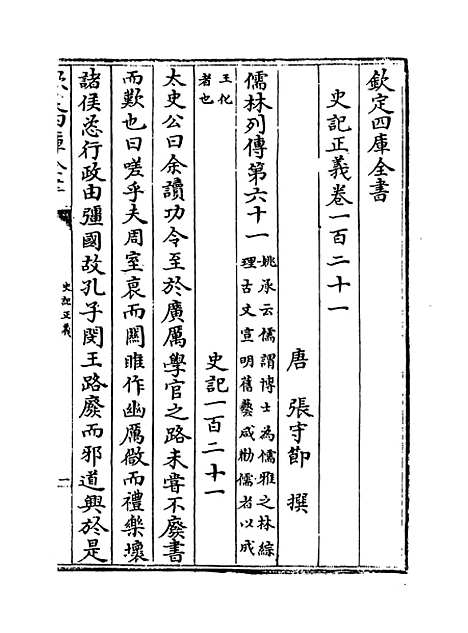 欽定四庫全書
史記正義卷一百二十一
唐 張守節 撰
儒林列傳第六十一
姚承云儒謂博士為儒雅之林綜
理古文宣明舊藝咸勸儒者以成
王化
者也
史記一百二十一
太史公曰余讀功令至於廣厲學官之路未嘗不廢書
而歎也曰嗟乎夫周室衰而關雎作幽厲微而禮樂壞
諸侯恣行政由彊國故孔子閔王路廢而邪道興於是
史記正義
一